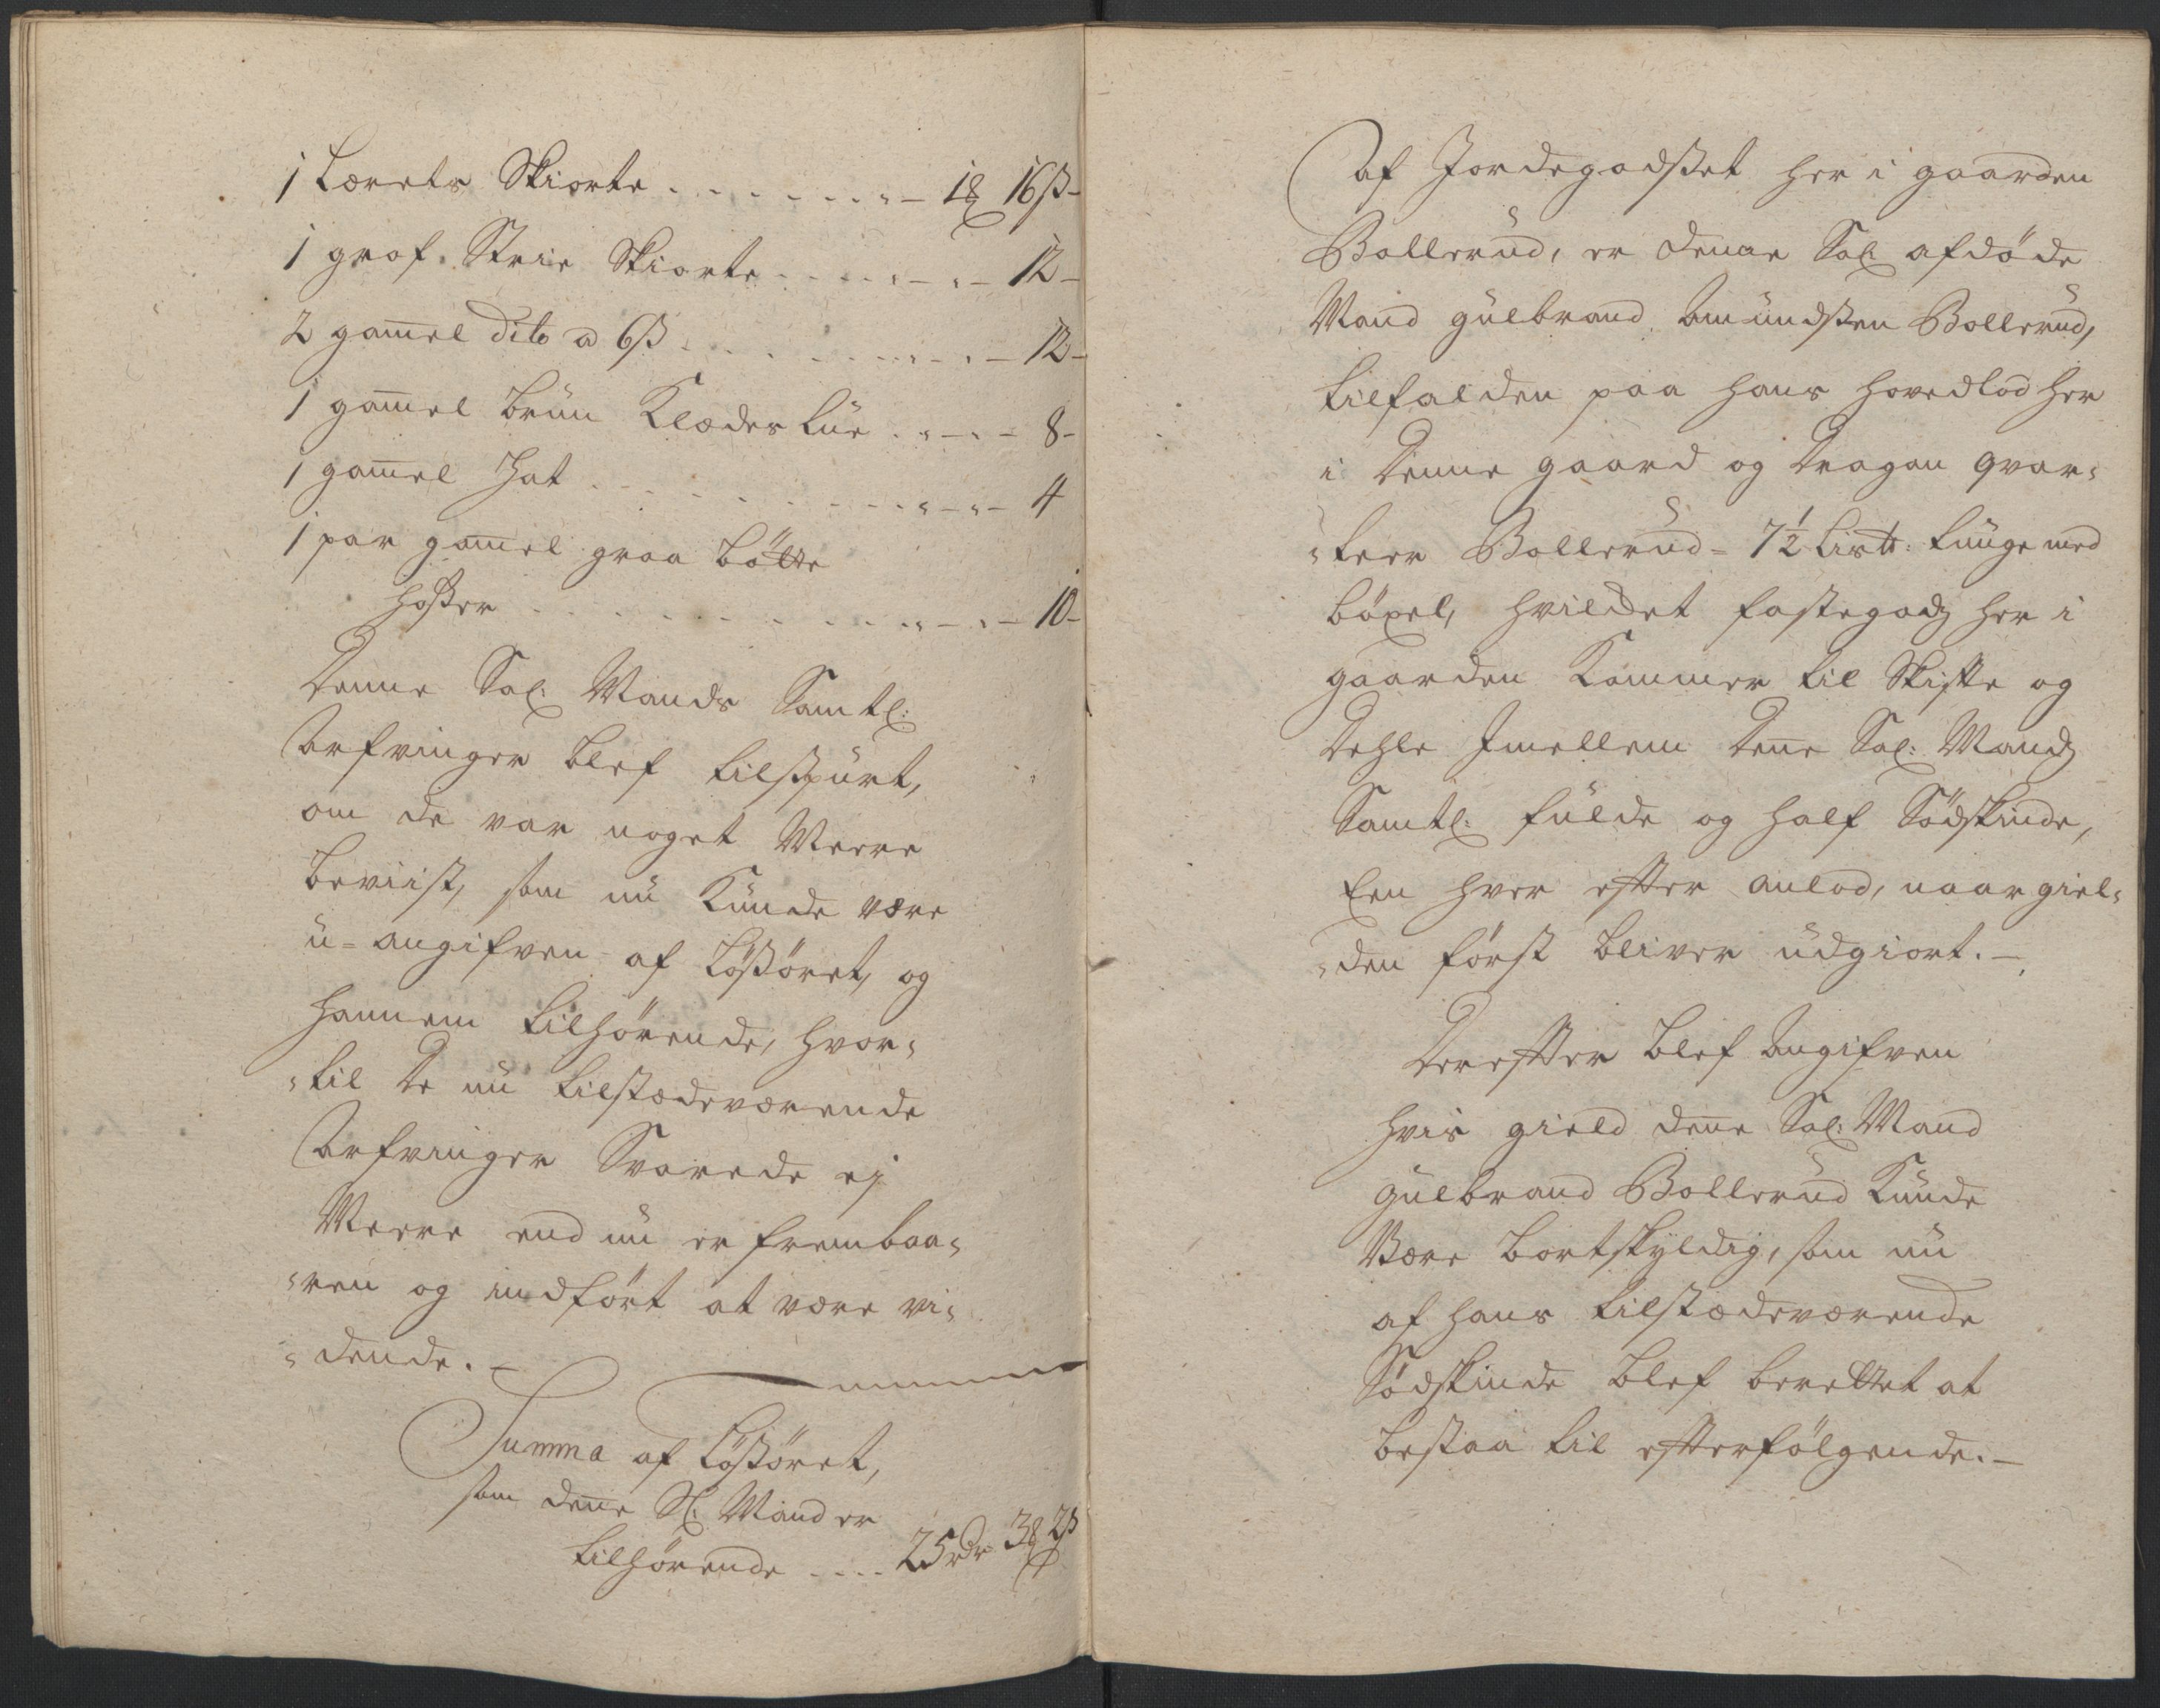 1 Lærets Skiorte . . . . . . . . „ – 1 ꝶ 16 ß –
1 grof Strie Skiorte . . . . „ – „ – 12 –
2 gam̄el dito a 6 ß . . . . . . „ – „ – 12 –
1 gam̄el brun Klædes Lue . „ – „ – 8 –
1 gam̄el Hat . . . . . . . . „ – „ – 4
1 par gam̄el graa bötte
hoßer . . . . . . . . . „ – „ – 10 –
Denne Sal: Mands Samtl:
Arfvinger blef tilspurt,
om de var noget Meere
beviist, som nu Kunde være
u-angifven af Lößöret, og
hannem tilhörende, hvor„
„til De nu tilstædeværende
Arfvinger Svarede ej
Meere end nu er frembaa„
„ren og indfört at være vi„
„dende. –
Summa af Lößöret,
som denne Sl: Mand er
tilhörende . . . . 25 rdr 3 ꝶ 2 ß
Af Jordegodßet her i gaarden
Bollerud, er denne Sal: afdöde
Mand Gulbrand Amundßen Bollerud,
tilfalden paa hans hovedlod her
i Denne gaard og Dragon qvar„
„teer Bollerud = 7½ Lis℔: tunge med
böxel, hvilcket fastegods her i
gaarden Kommer til Skifte og
Dehle Imellem Denne Sal: Mands
Samtl: fulde og half Södskinde,
Een hver efter anlod, naar giel„
„den först bliver udgiort. –
Derefter blef Angifven
hvis gield denne Sal: Mand
Gulbrand Bollerud Kunde
Være bortskyldig, som nu
af hans tilstædeværende
Södskinde blef berettet at
bestaa til efterfölgende. –